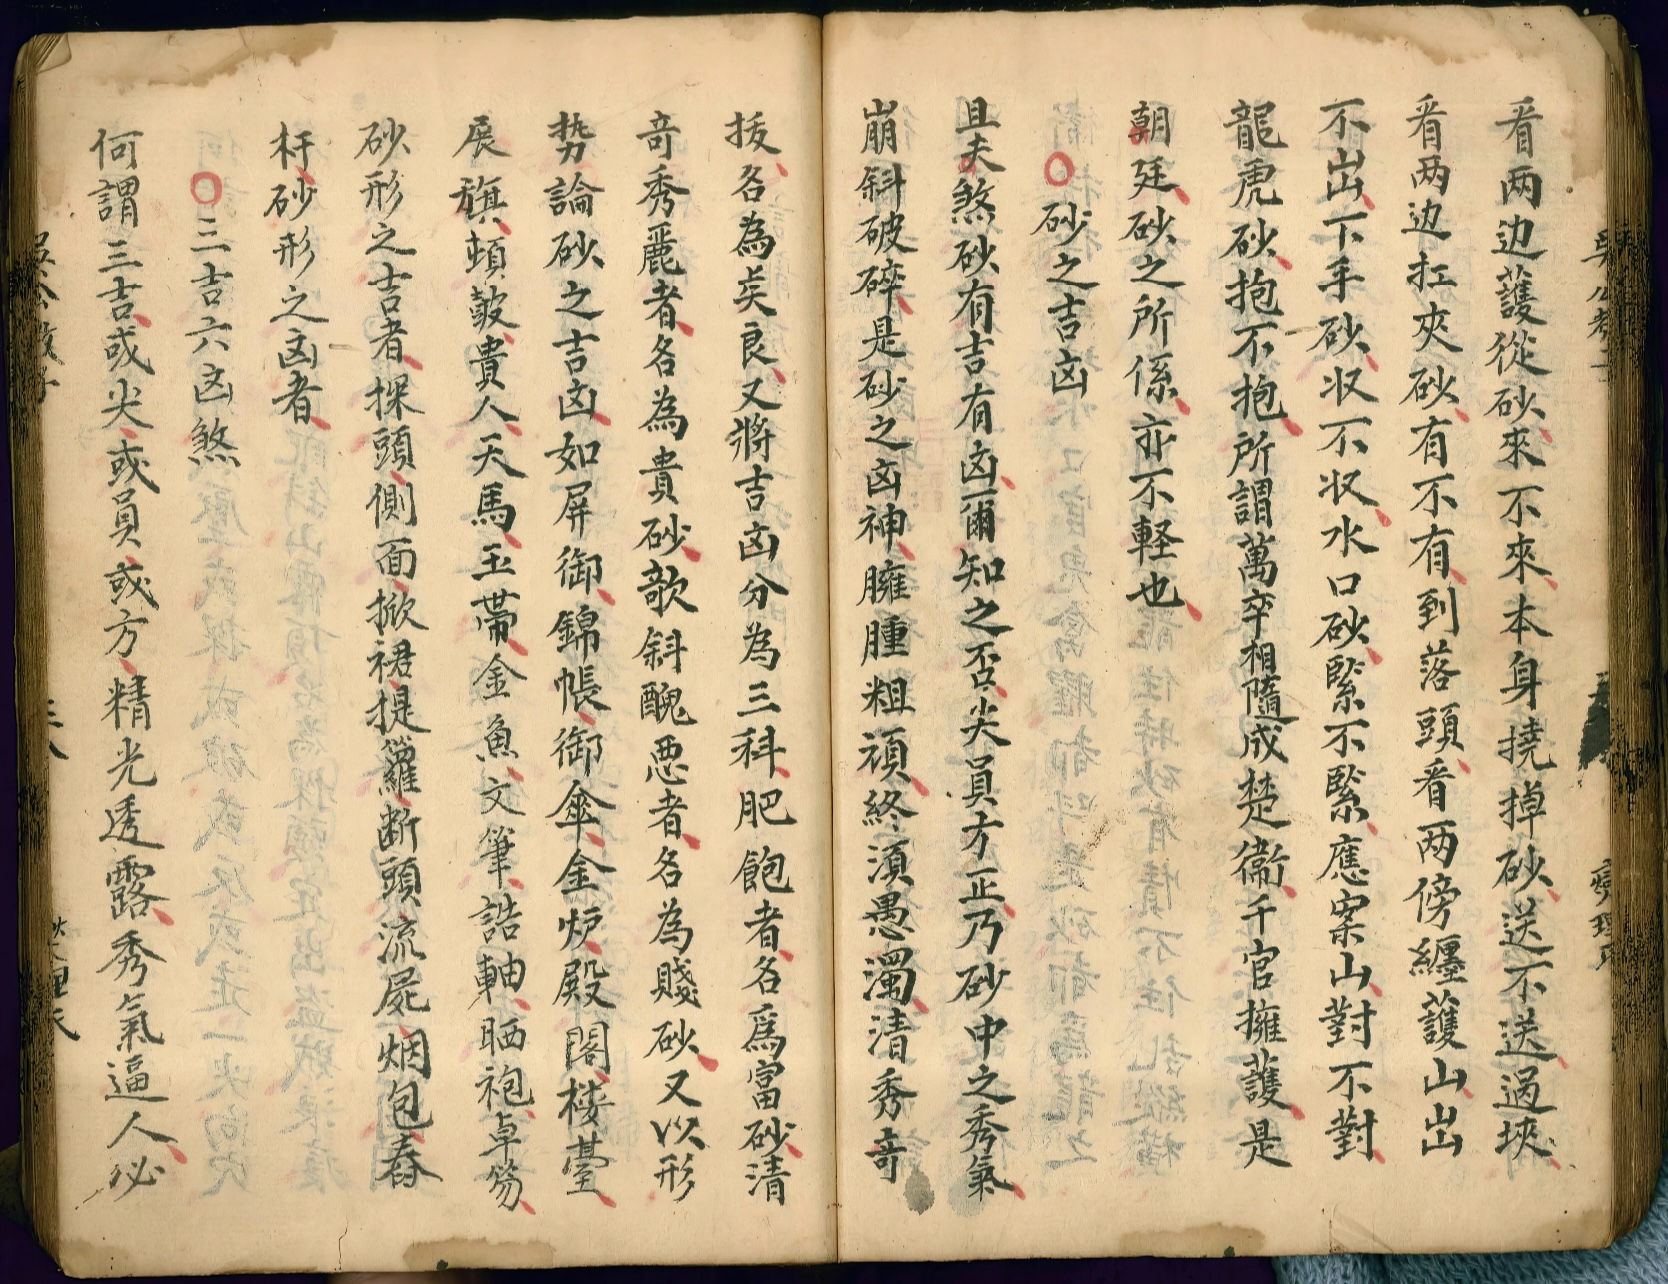 看两边護從砂來不來本身撓掉砂送不送過峽
看两边扛夾砂有不有到落頭看两傍纏護山出
不出下手砂収不収水口砂緊不緊應案山對不對
龍虎砂抱不抱所謂萬卒相隨成楚衞千官擁護是
朝廷砂之所係亦不軽也
○砂之吉凶
且夫煞砂有吉有凶爾知之否尖員方正乃砂中之秀氣
崩斜破碎是砂之凶神臃腫粗頑終須愚濁清秀竒
拔各為矣良又將吉凶分為三科肥飽者名爲富砂清
竒秀麗者名為貴砂欹斜醜悪者名為賤砂又以形
势論砂之吉凶如屏御錦帳御傘金炉殿閣楼臺
展旗頓鼓貴人天馬玉帶金魚文筆誥軸晒袍卓笏
砂形之吉者探頭側面掀裙提籮断頭流屍烟包舂
杵砂形之凶者
○三吉六凶煞
何謂三吉或尖或員或方精光透露秀氣逼人必